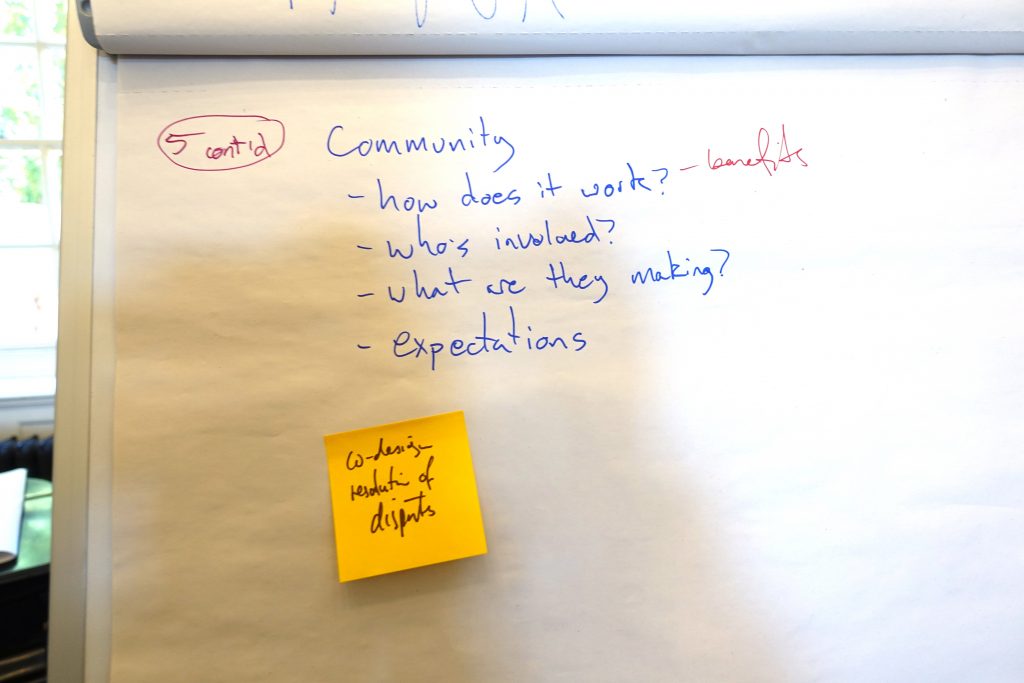 5 cont'd
Community
- how does it work? - benefits
- who's involved?
- what are they making?
- expectations
co-design
resolution of
disputes